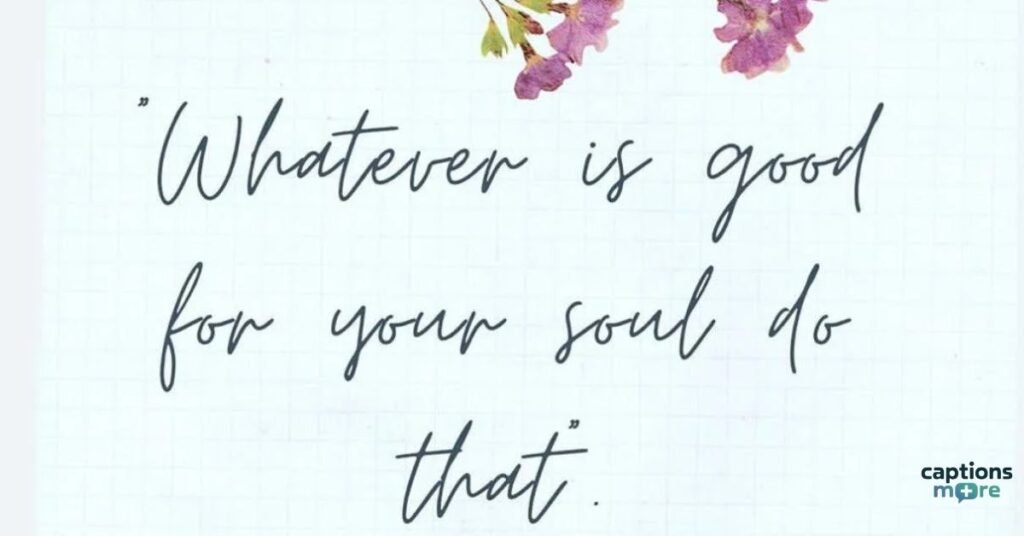 "Whatever is good
for your soul do
that".
captions
more